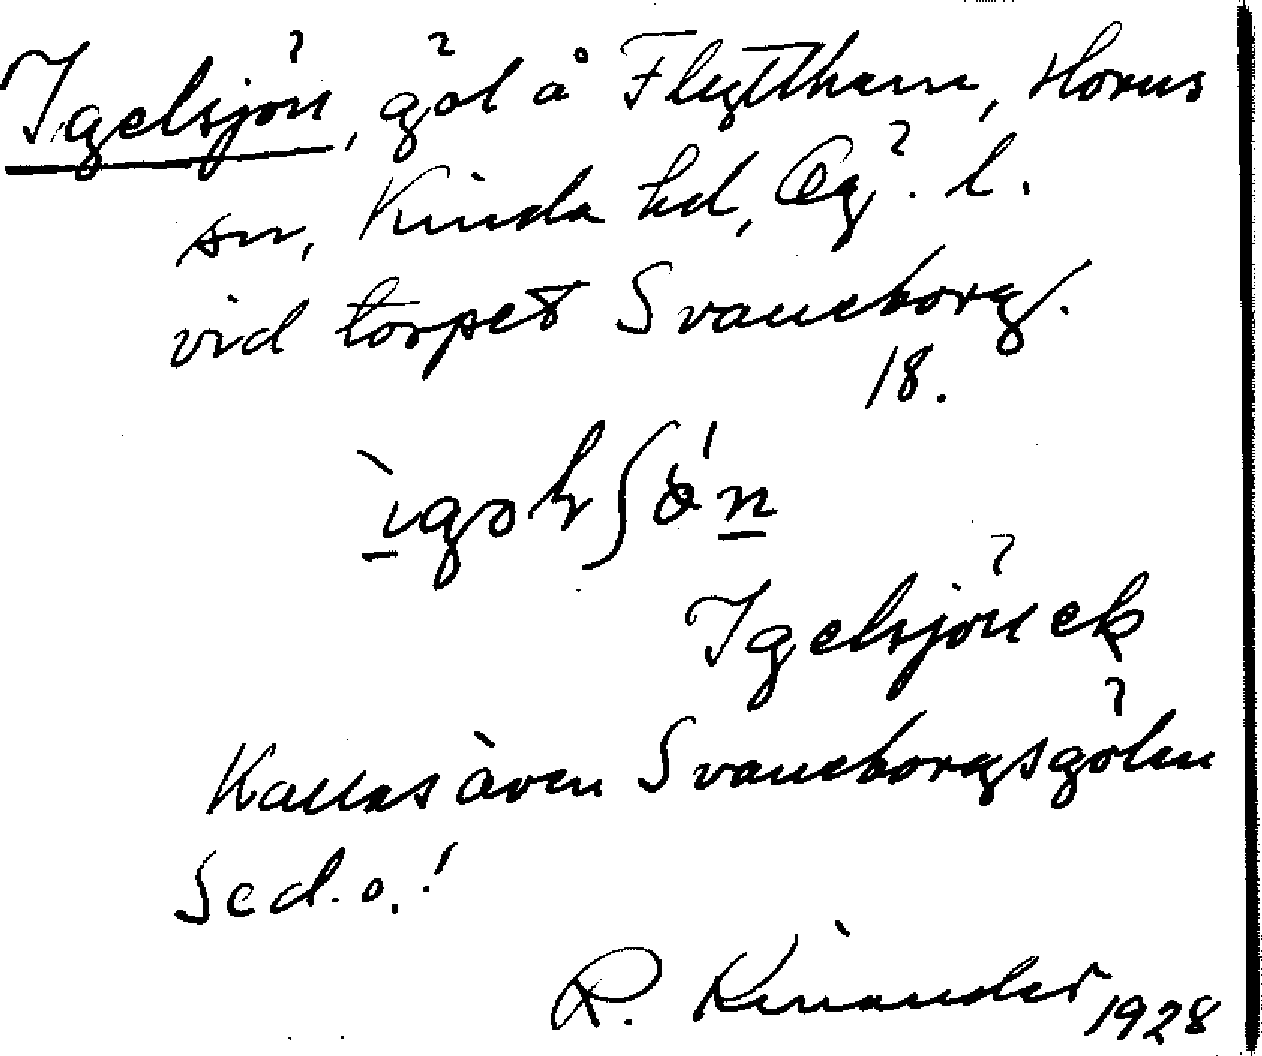 Igelsjön, göl å Flytthem, Horns
sn, Kinda hd, Ög. l.
vid torpet Svaneborg.
18.
Igelsjön ek
Kallas även Svaneborgsgölen
Se d. o.!
R. Kinander 1928